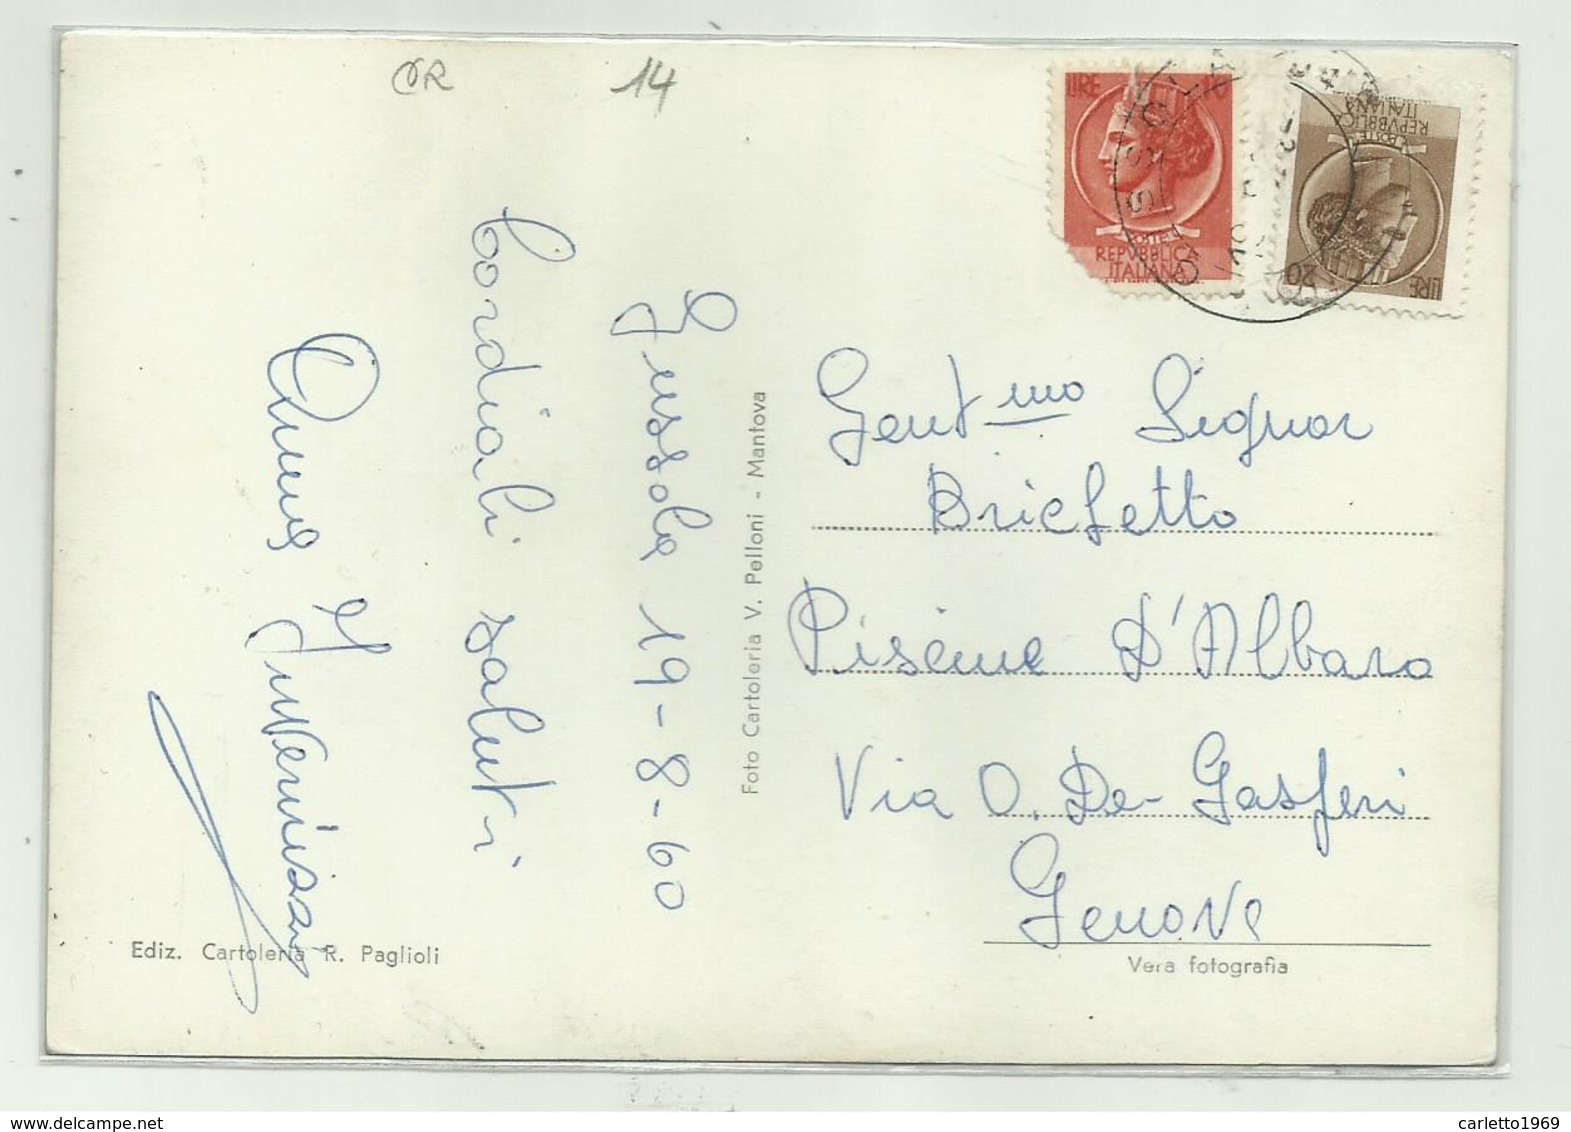 OR
14
Gussola 19-8-60
Cordiali saluti
Anna Invernizzi
Foto Cartoleria V. Pelloni - Mantova
Ediz. Cartoleria R. Paglioli
LIRE
POSTE
REPVBBLICA
ITALIANA
LIRE 20
POSTE
REPVBBLICA
ITALIANA
Gent.mo Signor
Brichetto
D'Albaro
Via O. De-Gasperi
Genova
Vera fotografia
www.delcampe.net
carletto1969